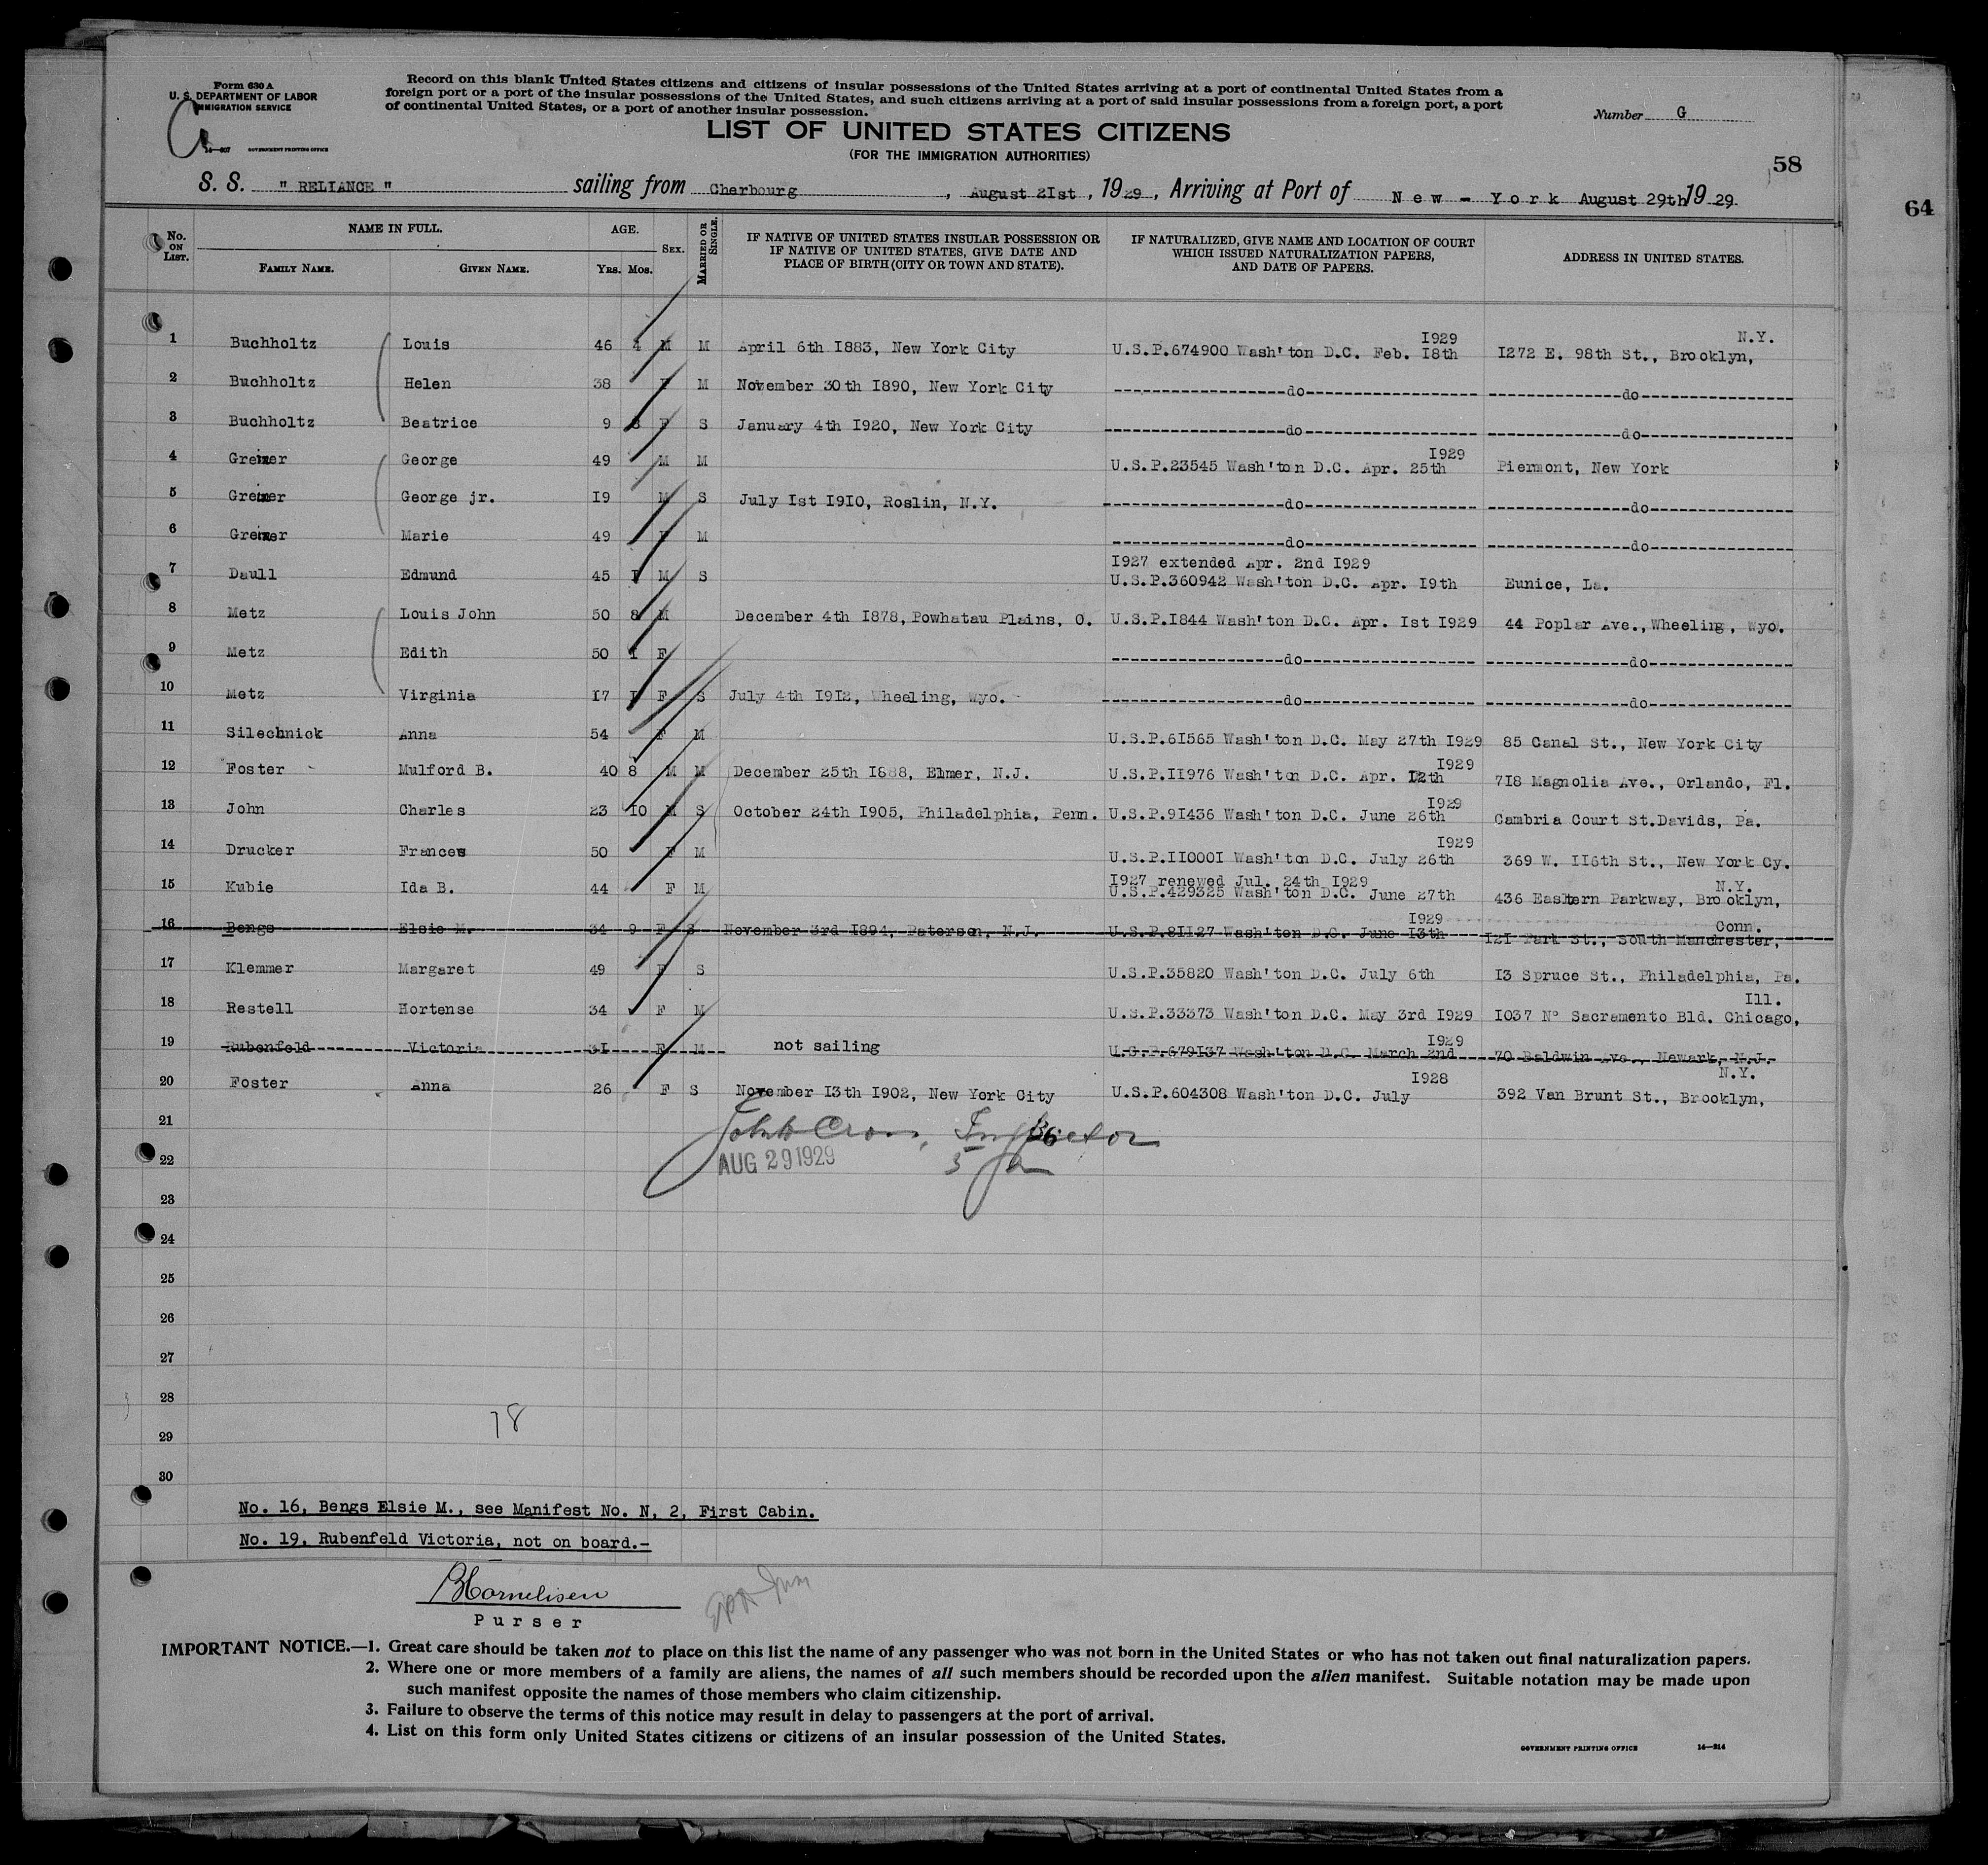 Form 630 A
U. S. DEPARTMENT OF LABOR
IMMIGRATION SERVICE
14—607 GOVERNMENT PRINTING OFFICE
Record on this blank United States citizens and citizens of insular possessions of the United States arriving at a port of continental United States from a
foreign port or a port of the insular possessions of the United States, and such citizens arriving at a port of said insular possessions from a foreign port, a port
of continental United States, or a port of another insular possession.
Number G
LIST OF UNITED STATES CITIZENS
(FOR THE IMMIGRATION AUTHORITIES)
58
64
S. S. " RELIANCE " sailing from Cherbourg, August 2Ist, 1929, Arriving at Port of New - York August 29th 19 29.
No. ON LIST. NAME IN FULL. AGE. SEX. MARRIED OR SINGLE. IF NATIVE OF UNITED STATES INSULAR POSSESSION OR IF NATIVE OF UNITED STATES, GIVE DATE AND PLACE OF BIRTH (CITY OR TOWN AND STATE). IF NATURALIZED, GIVE NAME AND LOCATION OF COURT WHICH ISSUED NATURALIZATION PAPERS, AND DATE OF PAPERS. ADDRESS IN UNITED STATES.
FAMILY NAME. GIVEN NAME. YRS. MOS.
1 Buchholtz Louis 46 4 M M April 6th I883, New York City U.S.P.674900 Wash'ton D.C. Feb. I8th I929 I272 E. 98th St., Brooklyn, N.Y.
2 Buchholtz Helen 38 F M November 30th I890, New York City do do
3 Buchholtz Beatrice 9 8 F S January 4th I920, New York City do do
4 Greiner George 49 M M U.S.P.23545 Wash'ton D.C. Apr. 25th I929 Piermont, New York
5 Greiner George jr. I9 M S July Ist I9IO, Roslin, N.Y. do do
6 Greiner Marie 49 F M do do
7 Daull Edmund 45 I M S I927 extended Apr. 2nd I929
U.S.P.360942 Wash'ton D.C. Apr. I9th Eunice, La.
8 Metz Louis John 50 8 M December 4th I878, Powhatau Plains, O. U.S.P.I844 Wash'ton D.C. Apr. Ist I929 44 Poplar Ave., Wheeling, Wyo.
9 Metz Edith 50 1 F do do
10 Metz Virginia I7 I F S July 4th I9I2, Wheeling, Wyo. do do
11 Silechnick Anna 54 F M U.S.P.6I565 Wash'ton D.C. May 27th I929 85 Canal St., New York City
12 Foster Mulford B. 40 8 M M December 25th I888, Elmer, N.J. U.S.P.II976 Wash'ton D.C. Apr. I2th I929 7I8 Magnolia Ave., Orlando, Fl.
13 John Charles 23 10 M S October 24th I905, Philadelphia, Penn. U.S.P.9I436 Wash'ton D.C. June 26th I929 Cambria Court St.Davids, Pa.
14 Drucker Frances 50 F M U.S.P.II000I Wash'ton D.C. July 26th I929 369 W. II6th St., New York Cy.
15 Kubie Ida B. 44 F M I927 renewed Jul. 24th I929
U.S.P.429325 Wash'ton D.C. June 27th 436 Eastern Parkway, Brooklyn, N.Y.
16 Bengs Elsie M. 34 9 F S November 3rd I894, Paterson, N.J. U.S.P.8II27 Wash'ton D.C. June I3th I929 I2I Park St., South Manchester, Conn.
17 Klemmer Margaret 49 F S U.S.P.35820 Wash'ton D.C. July 6th I3 Spruce St., Philadelphia, Pa.
18 Restell Hortense 34 F M U.S.P.33373 Wash'ton D.C. May 3rd I929 I037 N° Sacramento Bld. Chicago, Ill.
19 Rubenfeld Victoria 3I F M not sailing U.S.P.679I37 Wash'ton D.C. March 2nd I929 70 Baldwin Ave., Newark, N.J.
20 Foster Anna 26 F S November I3th I902, New York City U.S.P.604308 Wash'ton D.C. July I928 392 Van Brunt St., Brooklyn, N.Y.
21 Inspector
22 AUG 29 1929
23
24
25
26
27
28
78
29
30
No. 16, Bengs Elsie M., see Manifest No. N, 2, First Cabin.
No. 19, Rubenfeld Victoria, not on board.-
Purser
IMPORTANT NOTICE.—1. Great care should be taken not to place on this list the name of any passenger who was not born in the United States or who has not taken out final naturalization papers.
2. Where one or more members of a family are aliens, the names of all such members should be recorded upon the alien manifest. Suitable notation may be made upon
such manifest opposite the names of those members who claim citizenship.
3. Failure to observe the terms of this notice may result in delay to passengers at the port of arrival.
4. List on this form only United States citizens or citizens of an insular possession of the United States.
GOVERNMENT PRINTING OFFICE 14—214